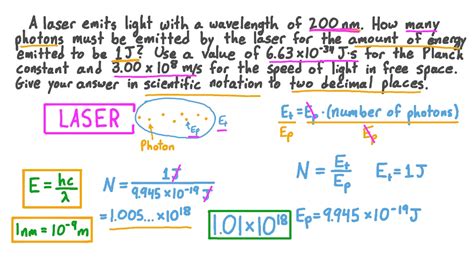 A laser emits light with a wavelength of 200 nm. How many
photons must be emitted by the laser for the amount of energy
emitted to be 1 J? Use a value of 6.63×10⁻³⁴ J·s for the Planck
constant and 3.00×10⁸ m/s for the speed of light in free space.
Give your answer in scientific notation to two decimal places.
LASER
Photon
Eₚ
Eₜ
Eₜ = Eₚ · (number of photons)
Eₚ Eₚ
E = hc/λ
N = 1J / 9.945×10⁻¹⁹ J
N = Eₜ/Eₚ Eₜ = 1J
1nm = 10⁻⁹ m
= 1.005... ×10¹⁸
1.01×10¹⁸
Eₚ = 9.945×10⁻¹⁹ J